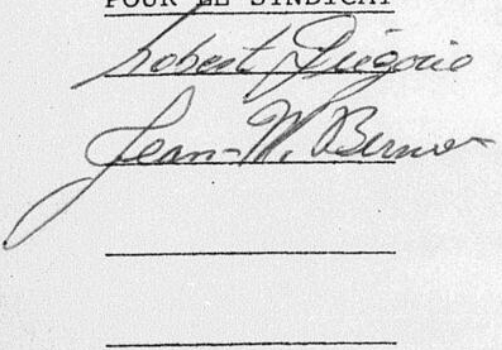 POUR LE SYNDICAT
Robert Grégorio
Jean-N. Bernier